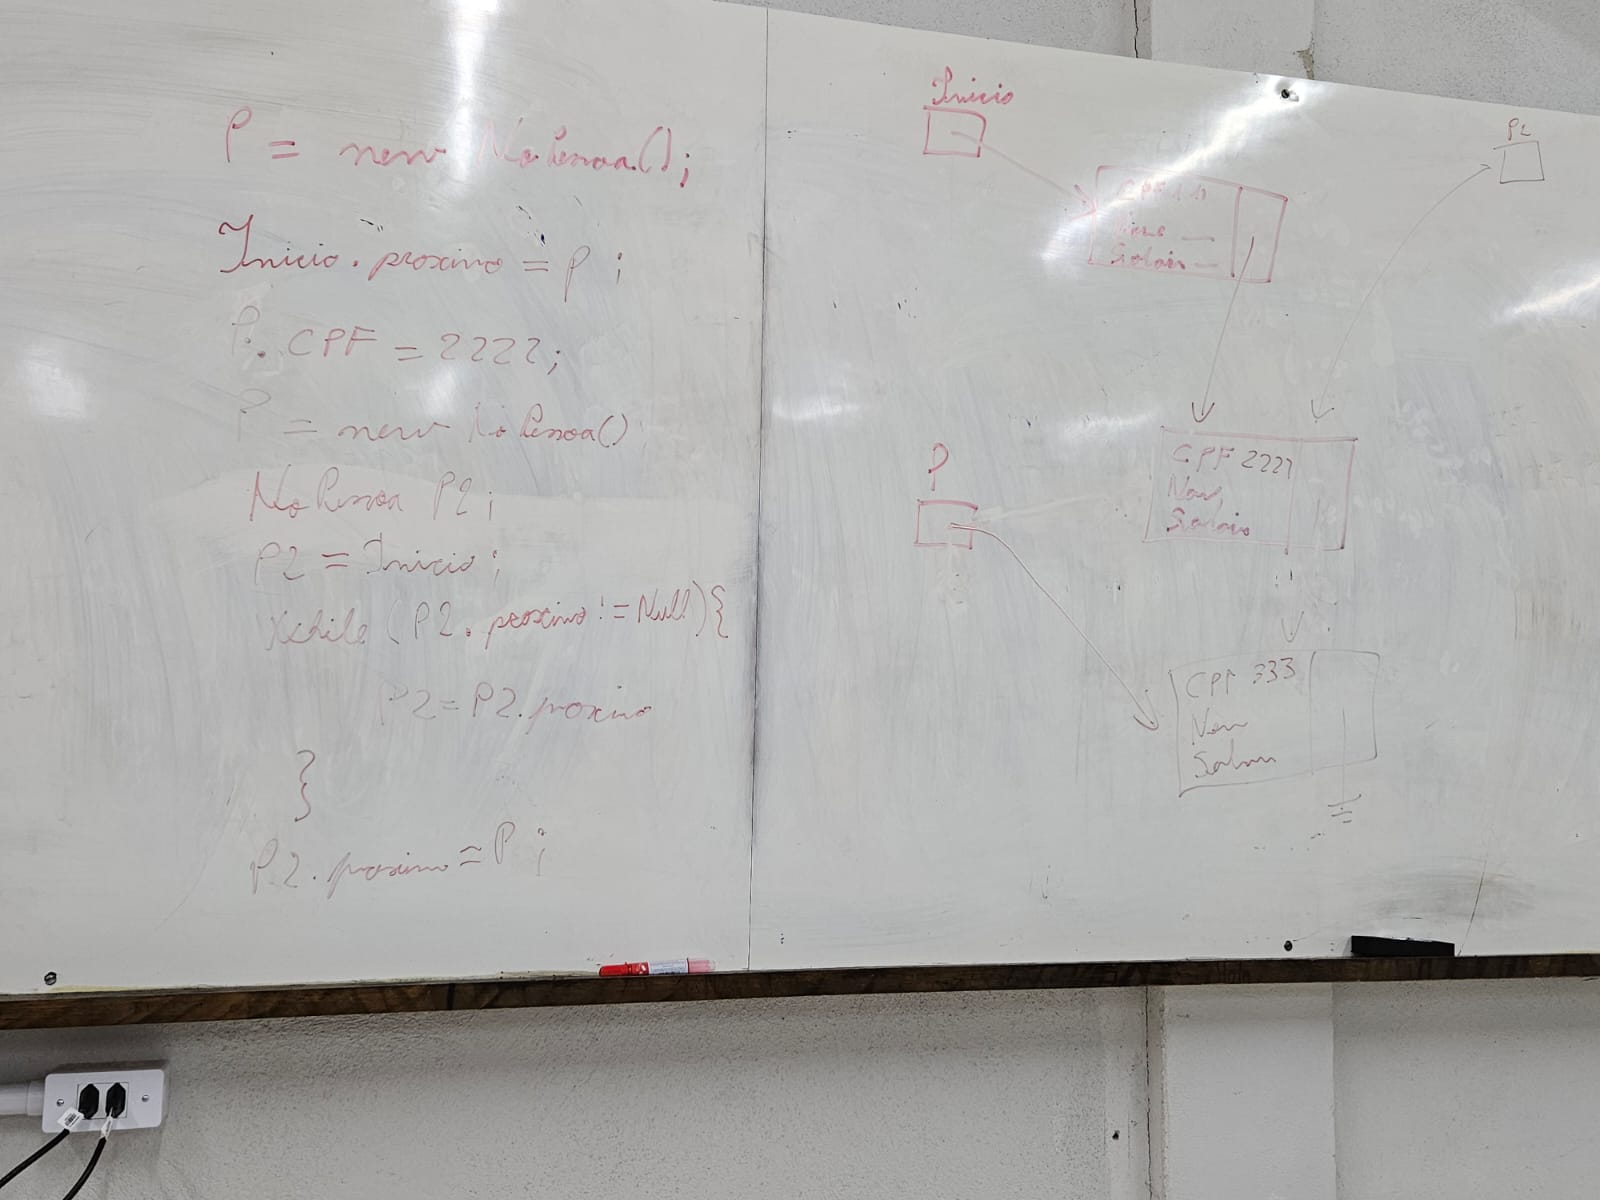 P = new NoPessoa();
Inicio.proximo = P;
P.CPF = 2222;
P = new NoPessoa()
NoPessoa P2;
P2 = Inicio;
while (P2.proximo != Null){
P2 = P2.proximo
}
P2.proximo = P;
Inicio
CPF
Salario
P2
P
CPF 2222
Salario
CPF 333